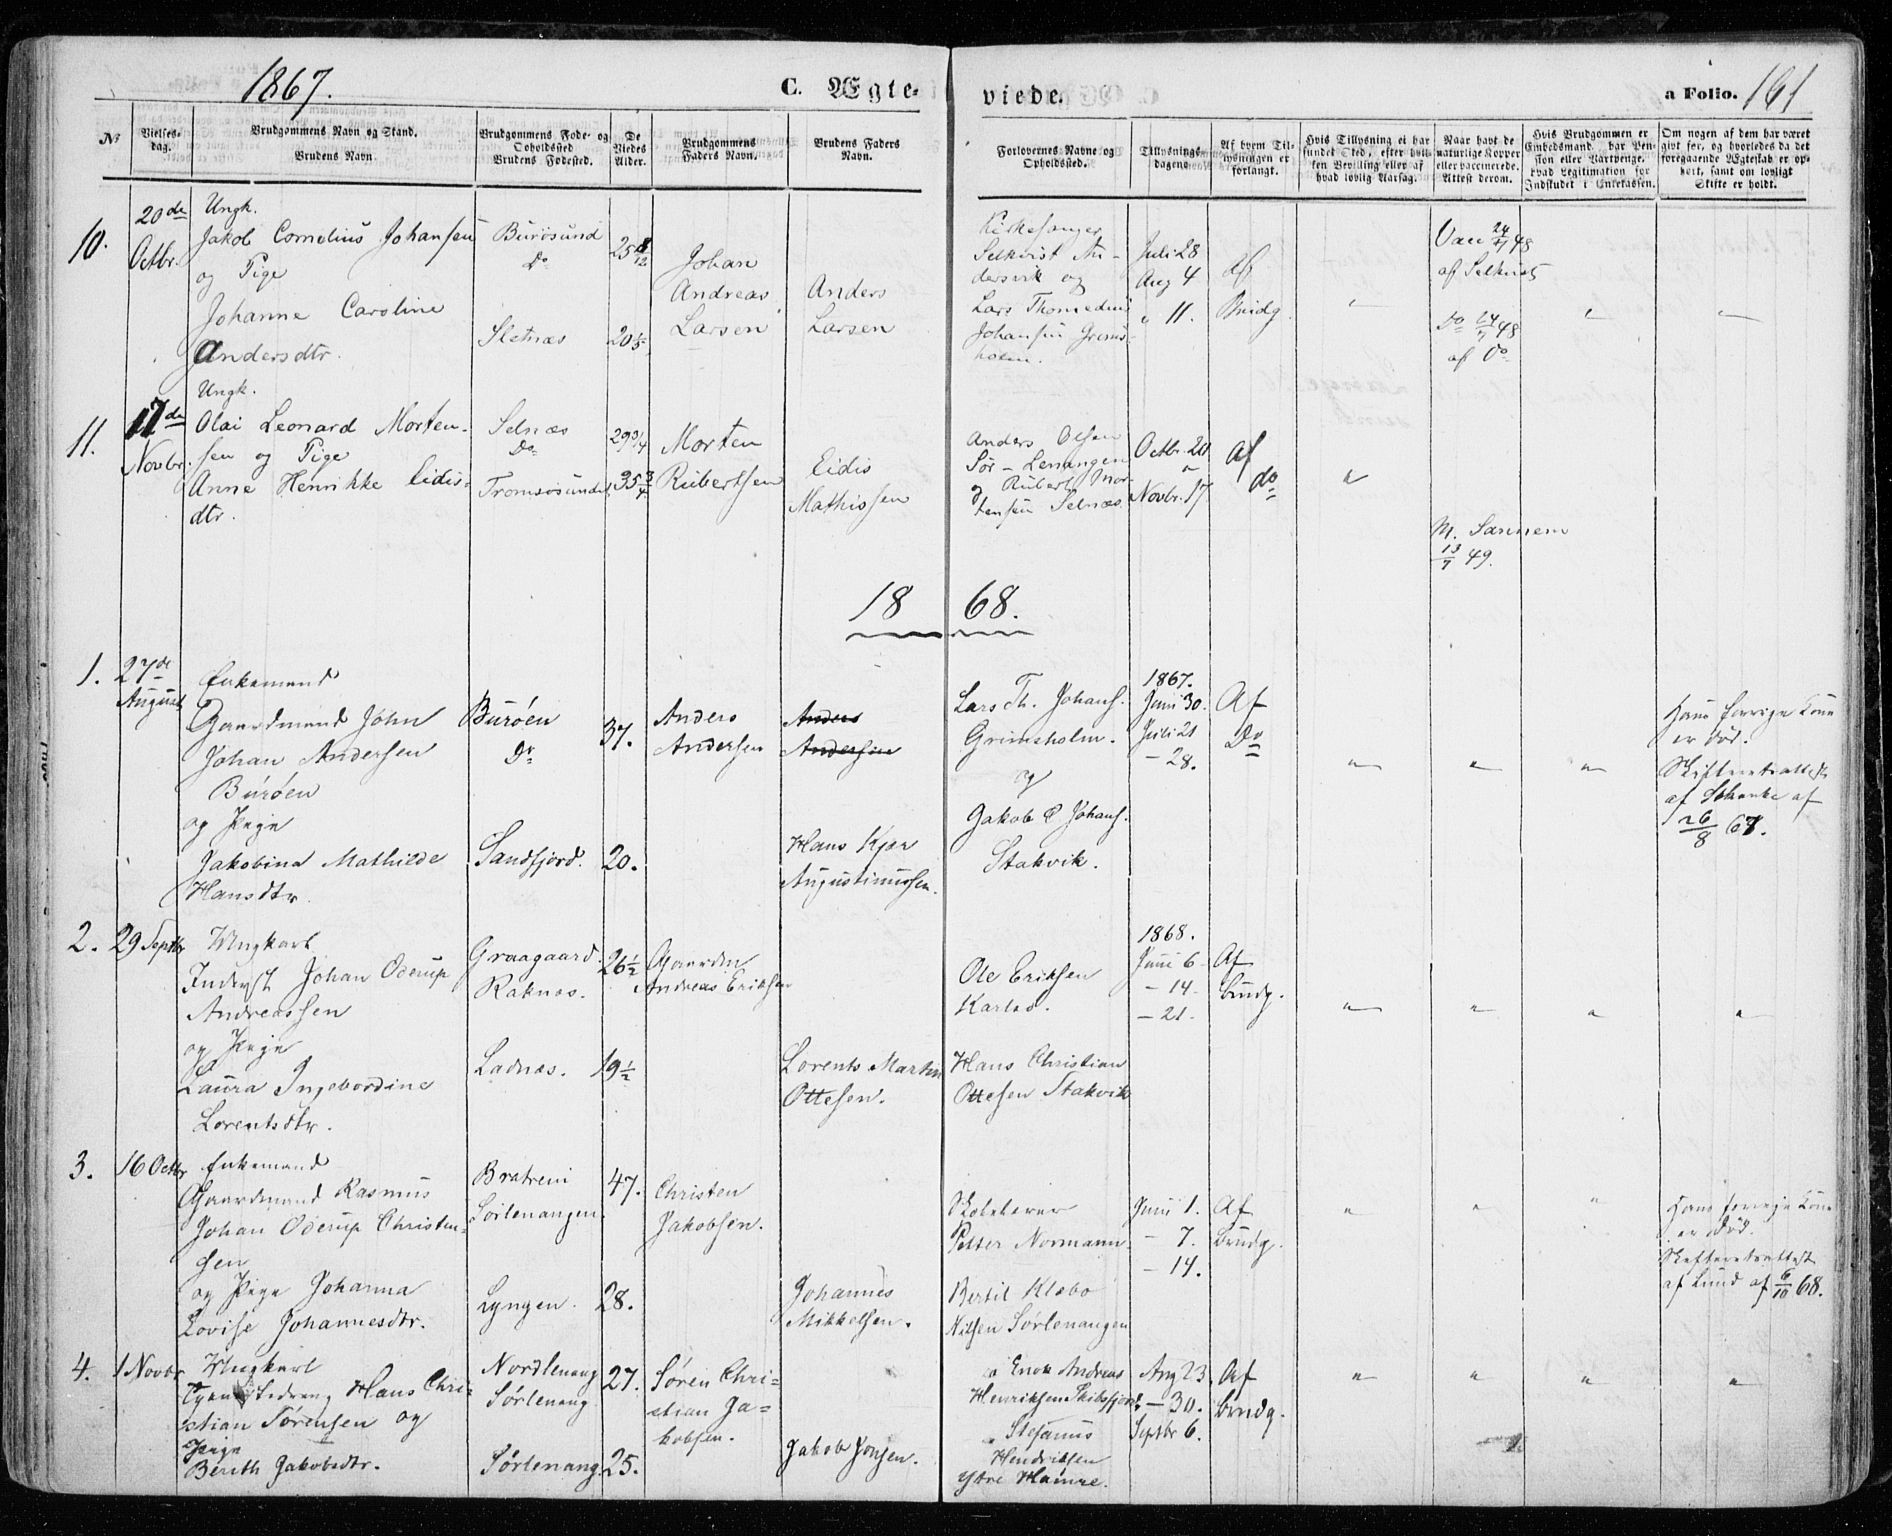 1867.
C. Ægte-
viede.
a Folio. 161
No
Vielses-
dag.
Brudgommens Navn og Stand.
Brudens Navn.
Brudgommens Føde- og
Opholdssted
Brudens Fødested.
De
Viedes
Alder.
Brudgommens
Faders Navn.
Brudens Faders
Navn.
Forlovernes Navne og
Opholdssted.
Tillysnings-
dagene.
Af hvem Til-
lysningen er
forlangt.
Hvis Tillysning ei har
fundet Sted, efter hvil-
ken Bevilling eller af
hvad lovlig Aarsag.
Naar havt de
naturlige Kopper
eller vaccinerede.
Attest derom.
Hvis Brudgommen er
Embedsmand, har Pen-
sion eller Vartpenge,
hvad Legitimation for
Indskudet i Enkekassen.
Om nogen af dem har været
givt før, og hvorledes da det
foregaaende Ægteskab er op-
hørt, samt om lovligt
Skifte er holdt.
10.
20de
Octbr.
Ungk.
Jakob Cornelius Johansen
og Pige
Johanne Caroline
Andersdtr.
Burøsund
Do
Sletnæs
25 8/12
20 1/5
Johan
Andreas
Larsen
Anders
Larsen
Kirkesanger
Selkvist An-
dersvik og
Lars Thomedius
Johansen Grims-
holm.
Juli 28
Aug 4
" 11.
Af
Brudg.
"
Vac 24/7 48
af Selkvist
Do 24/7 48
af Do
"
"
11.
17de
Novbr.
Ungk.
Olai Leonard Morten-
sen og Pige
Anne Henrikke Eidis-
dtr.
Selnæs
Do
Tromsøsundet
29 3/4
35 3/4
Morten
Rubertsen
Eidis
Mathissen
Anders Olsen
Sør-Lenangen
og Rubert Mor-
tensen Selnæs.
Octbr. 20
"
Novbr. 17
Af
do
"
M. Sannem
13/7 49.
18 68.
1.
27de
August
Enkemand
Gaardmand John
Johan Andersen
Burøen
og Pige
Jakobina Mathilde
Hansdtr.
Burøen
Do
Sandfjord.
37.
20.
Anders
Andersen
Anders
Andersen
Hans Kjær
Augustinussen.
Lars Th. Johans.
Grimsholm.
og
Jakob C Johans.
Stakvik.
1867.
Juni 30.
Juli 21
- 28.
Af
Do
"
"
"
Hans forrige Kone
er død.
Skifteretsattest
af Schanke af
26/8 67.
2.
29 Septbr
Ungkarl
Inderst Johan Oderup
Andreassen
og Pige
Laura Ingebordine
Lorentsdtr.
Graagaard.
Raknæs.
Ladnæs.
26 1/2
19 1/2
Gaardm
Andreas Eriksen
Lorents Martin
Ottesen.
Ole Eriksen
Karlsø.
Hans Christian
Ottesen Stakvik
1868.
Juni 6
- 14.
- 21.
Af
Brudg.
"
"
"
"
3.
16 Octbr
Enkemand
Gaardmand Rasmus
Johan Oderup Christen-
sen
og Pige Johanna
Lovise Johannesdtr.
Bratrein
Sørlenangen
Lyngen.
47.
28.
Christen
Jakobsen.
Johannes
Mikkelsen.
Skolelærer
Petter Normann
Bertil Klæbo
Nilsen Sørlenangen
Juni 1.
- 7.
- 14.
Af
Brudg.
"
"
"
Hans forrige Kone
er død.
Skifteretsattest
af Lund af 6/10 68.
4.
1 Novbr
Ungkarl
Hans Chri-
stian Sørensen og
Pige
Berith Jakobsdtr.
Nordlenang
Sørlenang
Sørlenang.
27.
25.
Søren Chri-
stian Ja-
kobsen.
Jakob Jonsen.
Enok Andreas
Henriksen Skibsfjord.
Stefanus
Hendriksen
Ytre Hamre.
Aug 23.
- 30.
Septbr 6.
Af
Brudg.
"
"
"
"